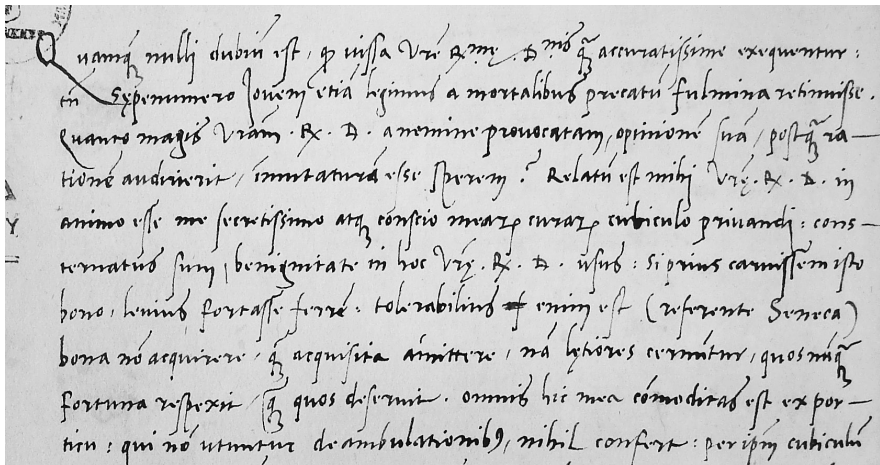 Quamq̃ nulli dubiũ est, ꝙ iussa Vrẽ Rmę. Dnis q̃ accuratissime exequentur:
tñ Sępenumero Iovem etiã legimus a mortalibus precatũ fulmina retinuisse.
Quanto magis Vram. R. D. a nemine provocatam, opinionẽ suã, postq̃ ra-
tionẽ audierit, immutaturã esse sperem? Relatũ est mihi Vrę. R. D. in
animo esse me secretissimo atq conscio mearꝝ curarꝝ cubiculo privandi: cons-
ternatus sum, benignitate in hoc Vrę. R. D. usus: Si prius caruissem isto
bono, levius fortasse ferrẽ: tolerabilius enim est (referente Seneca)
bona nõ acquirere, q̃ acquisita amittere, nã lętiores cernũtur, quos nũq̃
fortuna respexit, q̃ quos deseruit. omnis hic mea cõmoditas est ex por-
ticu: qui nõ utuntur deambulationibꝰ, nihil confert: per ipm̃ cubiculũ